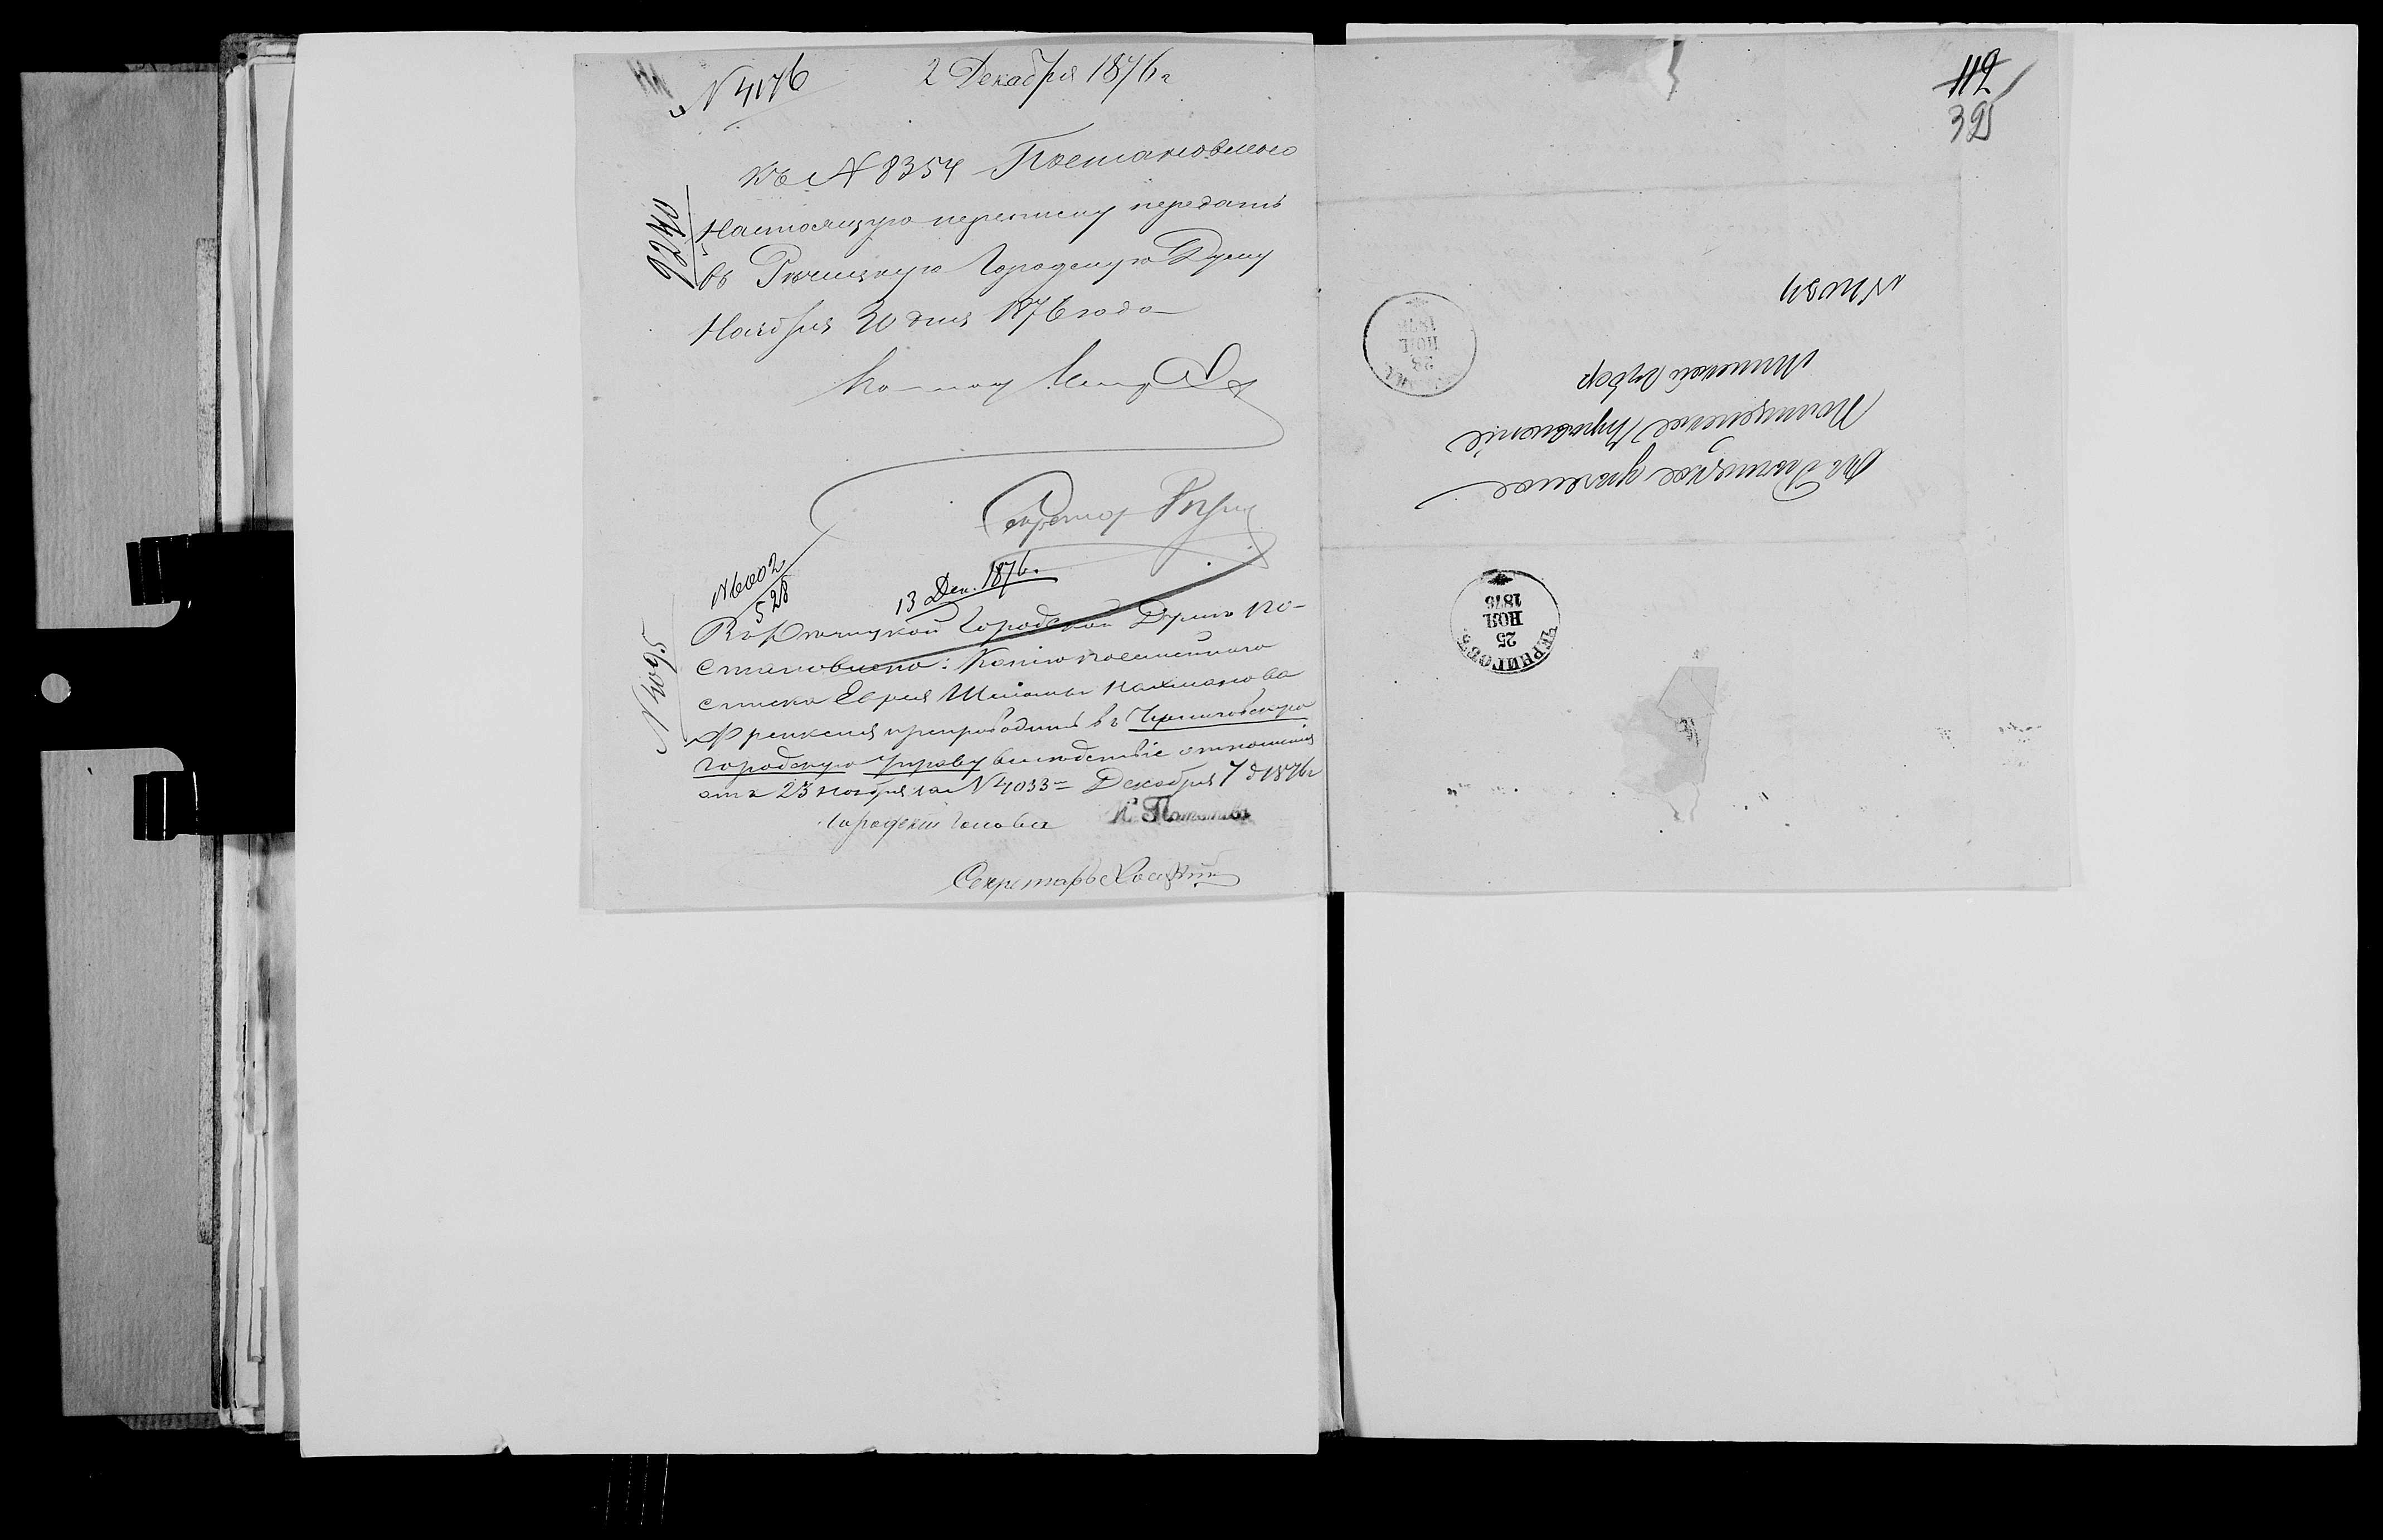 N 4176
2 Декабря 1876 г
Къ N 8354 Постановлено
9240
Настоящую переписку передать
въ Рѣчицкую Городскую Думу
Ноября 30 дня 1876 года
Секретарь
N 6002
528
13 Дек. 1876.
N 4095
Въ Рѣчицкой Городской Думѣ по-
становлено: Копію посемейнаго
списка Еврея Шліомы Нахманова
Френкеля препроводить въ Черниговскую
городскую Управу вслѣдствіе отношенія
отъ 23 ноября за N 4033 Декабря 7 д 1876 г
Городской Голова К. Потаповъ
Секретарь
112
39
N 4034
Въ Рѣчицкое уѣздное
Полицейское Управленіе
Минской Губер
НОЯ
ЧЕРНИГОВЪ
25
НОЯ
1876